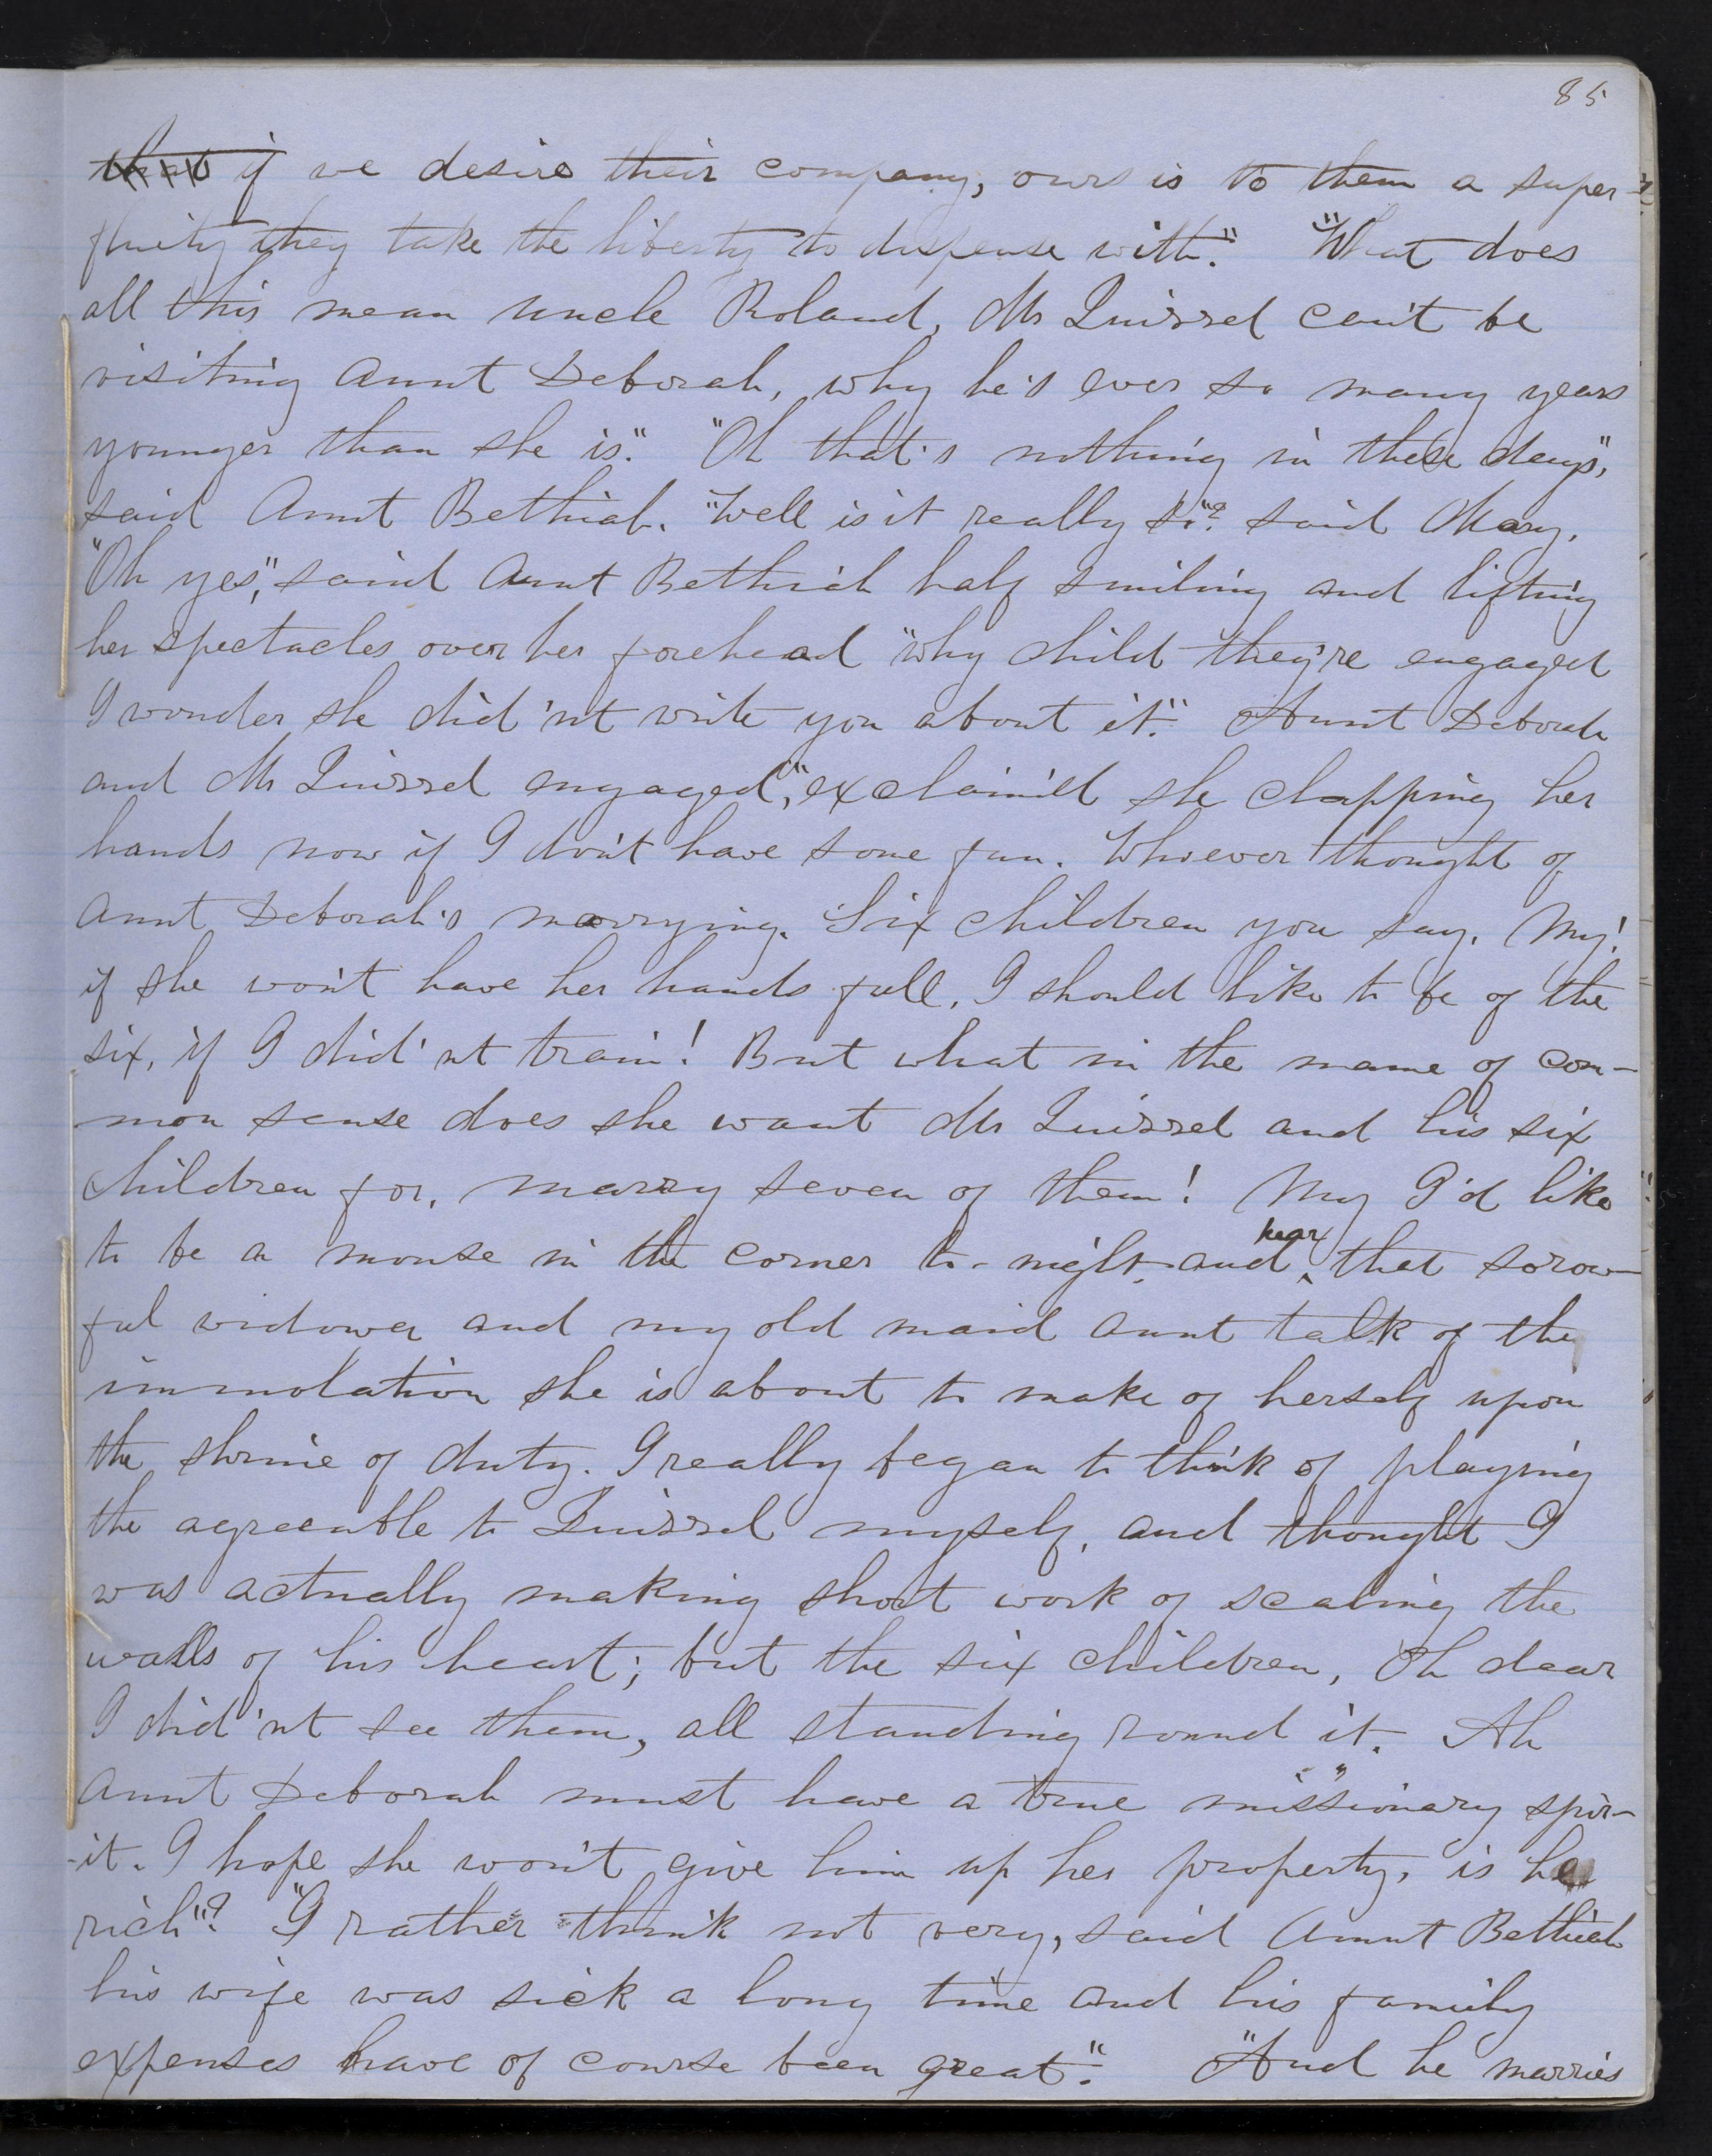 85
that if we desire their company, ours is to them a super-
fluity they take the liberty to dispense with." "What does
all this mean uncle Roland, Mr Quirrel can't be
visiting Aunt Deborah, why he's ever so many years
younger than she is." "Oh that's nothing in these days",
said Aunt Bethiah. "Well is it really so"? said Mary.
"Oh yes", said Aunt Bethiah half smiling and lifting
her spectacles over her forehead "why child they're engaged
I wonder she did'nt write you about it." Aunt Deborah
and Mr Quirrel engaged", exclaim'd she clapping her
hands now if I don't have some fun. Whoever thought of
Aunt Deborah's marrying. Six children you say. My!
if she won't have her hands full, I should like to be of the
six, if I did'nt train! But what in the name of com-
mon sense does she want Mr Quirrel and his six
children for, marry seven of them! My I'd like
to be a mouse in the corner to-night and hear that sorow-
ful widower and my old maid aunt talk of the
immolation she is about to make of herself upon
the shrine of duty. I really began to think of playing
the agreeable to Quirrel myself, and thought I
was actually making short work of scaling the
walls of his heart; but the six children, Oh dear
I did'nt see them, all standing round it. Ah
Aunt Deborah must have a true missionary spir-
-it. I hope she won't give him up her property, is he
rich"? "I rather think not very, said Aunt Bethiah
his wife was sick a long time and his family
expenses have of course been great." "And he marries